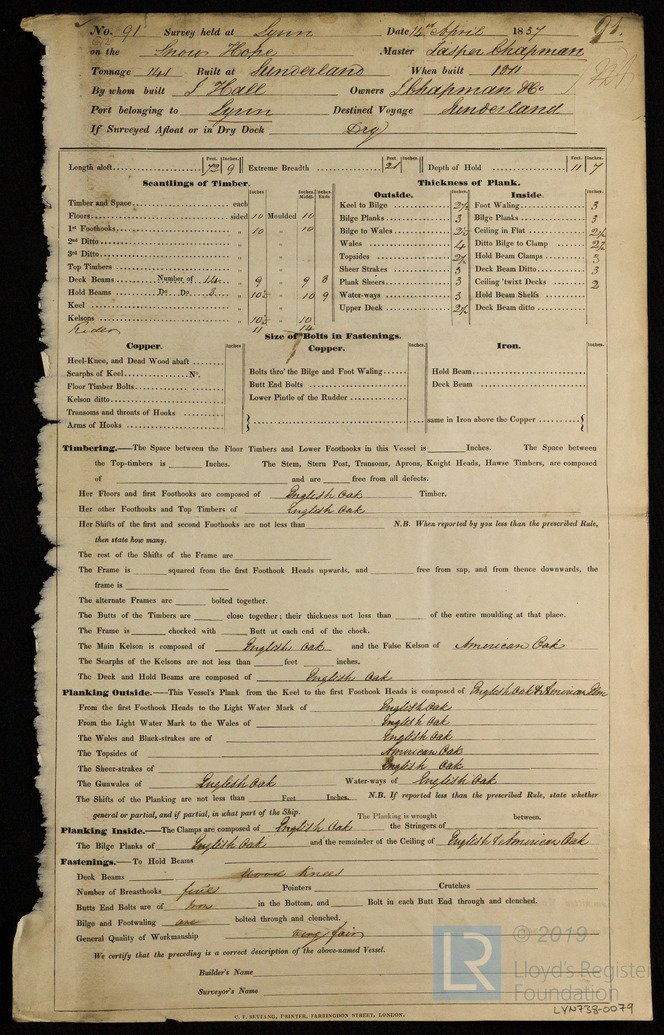 No. 91 Survey held at Lynn Date 14th April 1837 91.
on the Snow Hope Master Jasper Chapman
Tonnage 141 Built at Sunderland When built 1811
By whom built J Hall Owners J Chapman & Co
Port belonging to Lynn Destined Voyage Sunderland
If Surveyed Afloat or in Dry Dock Dry
Length aloft Feet. Inches. 72 9 Extreme Breadth Feet. Inches. 21 Depth of Hold Feet. Inches. 11 7
Scantlings of Timber. Thickness of Plank.
Inches Inches Middle Inches Ends Outside. Inches. Inside. Inches.
Timber and Space each Keel to Bilge 2½ Foot Waling 3
Floors sided 10 Moulded 10 Bilge Planks 3 Bilge Planks 3
1st Foothooks „ 10 „ 10 Bilge to Wales 2½ Ceiling in Flat 2½
2nd Ditto „ „ Wales 4 Ditto Bilge to Clamp 2½
3rd Ditto „ „ Topsides 2½ Hold Beam Clamps 3
Top Timbers „ „ Sheer Strakes 3 Deck Beam Ditto 3
Deck Beams Number of 14 „ 9 „ 9 8 Plank Sheers 3 Ceiling 'twixt Decks 2
Hold Beams Do. Do. „ 10½ „ 10 9 Water-ways 3 Hold Beam Shelfs
Keel „ „ Upper Deck 2½ Deck Beam ditto
Kelsons „ 10½ „ 10
Rider 11 14
Size of Bolts in Fastenings.
Copper. Inches Copper. Inches. Iron. Inches
Heel-Knee, and Dead Wood abaft
Scarphs of Keel No. Bolts thro' the Bilge and Foot Waling Hold Beam
Floor Timber Bolts Butt End Bolts Deck Beam
Kelson ditto Lower Pintle of the Rudder
Transoms and throats of Hooks
Arms of Hooks same in Iron above the Copper
Timbering.—The Space between the Floor Timbers and Lower Foothooks in this Vessel is Inches. The Space between
the Top-timbers is Inches. The Stem, Stern Post, Transoms, Aprons, Knight Heads, Hawse Timbers, are composed
of and are free from all defects.
Her Floors and first Foothooks are composed of English Oak Timber.
Her other Foothooks and Top Timbers of English Oak
Her Shifts of the first and second Foothooks are not less than N.B. When reported by you less than the prescribed Rule,
then state how many.
The rest of the Shifts of the Frame are
The Frame is squared from the first Foothook Heads upwards, and free from sap, and from thence downwards, the
frame is
The alternate Frames are bolted together.
The Butts of the Timbers are close together; their thickness not less than of the entire moulding at that place.
The Frame is chocked with Butt at each end of the chock.
The Main Kelson is composed of English Oak and the False Kelson of American Oak
The Scarphs of the Kelsons are not less than feet inches.
The Deck and Hold Beams are composed of English Oak
Planking Outside.—This Vessel's Plank from the Keel to the first Foothook Heads is composed of English Oak & American Elm
From the first Foothook Heads to the Light Water Mark of English Oak
From the Light Water Mark to the Wales of English Oak
The Wales and Black-strakes are of English Oak
The Topsides of American Oak
The Sheer-strakes of English Oak
The Gunwales of English Oak Water-ways of English Oak
The Shifts of the Planking are not less than Feet Inches. N.B. If reported less than the prescribed Rule, state whether
general or partial, and if partial, in what part of the Ship. The Planking is wrought between.
Planking Inside.—The Clamps are composed of English Oak the Stringers of
The Bilge Planks of English Oak and the remainder of the Ceiling of English & American Oak
Fastenings.—To Hold Beams
Deck Beams Wood Knees
Number of Breasthooks five Pointers Crutches
Butts End Bolts are of Iron in the Bottom, and Bolt in each Butt End through and clenched.
Bilge and Footwaling are bolted through and clenched.
General Quality of Workmanship very fair
We certify that the preceding is a correct description of the above-named Vessel.
Builder's Name
Surveyor's Name
C. F. SEYFANG, PRINTER, FARRINGDON STREET, LONDON.
LR © 2019
Lloyd's Register
Foundation
LYN738-0079